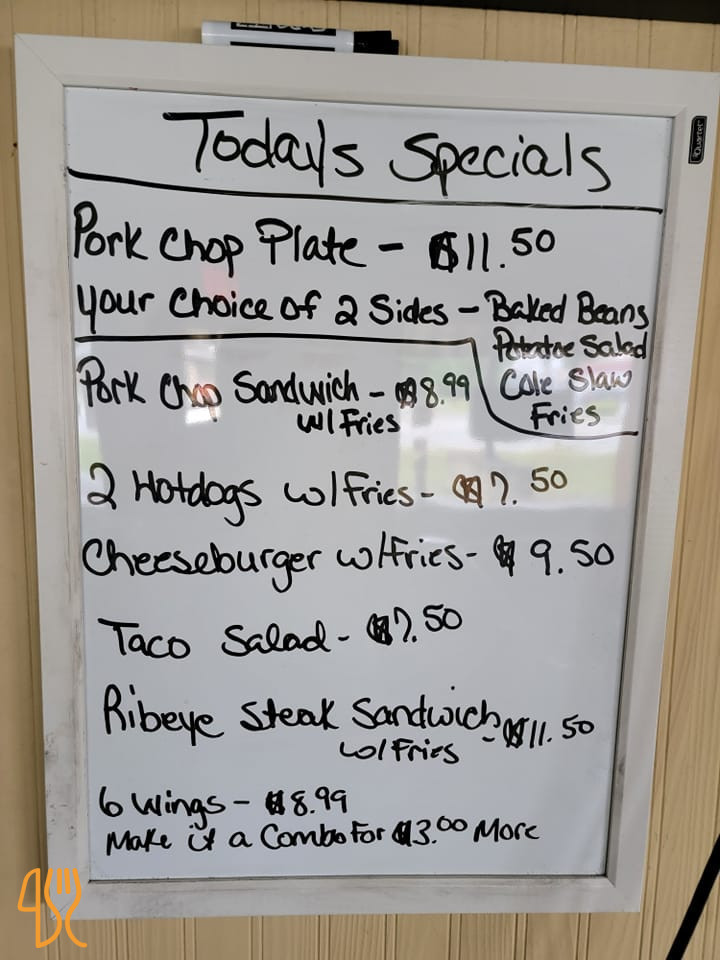 Today's Specials
Pork Chop Plate - $11.50
Your Choice of 2 Sides - Baked Beans
Potatoe Salad
Cole Slaw
Fries
Pork Chop Sandwich - $8.99
w/ Fries
2 Hotdogs w/ Fries - $7.50
Cheeseburger w/ Fries - $9.50
Taco Salad - $7.50
Ribeye Steak Sandwich - $11.50
w/ Fries
6 Wings - $8.99
Make it a Combo For $3.00 More
Quartet